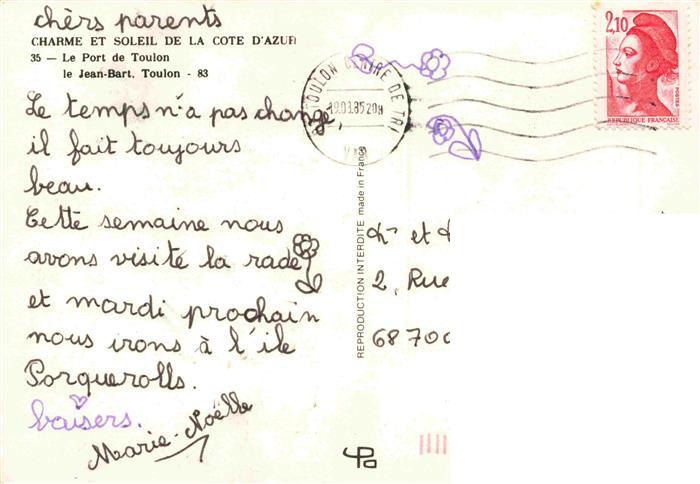 chèrs parents
CHARME ET SOLEIL DE LA COTE D'AZUR
35 — Le Port de Toulon
le Jean-Bart. Toulon - 83
Le temps n'a pas change,
il fait toujours
beau.
Cette semaine nous
avons visité la rade
et mardi prochain
nous irons à l'ile
Porquerolls.
baisers.
Marie-Noëlle
TOULON CENTRE DE TRI
19.03.85 20H
VAR
2,10
POSTES
REPUBLIQUE FRANÇAISE
REPRODUCTION INTERDITE made in France
et
2, Rue
68700